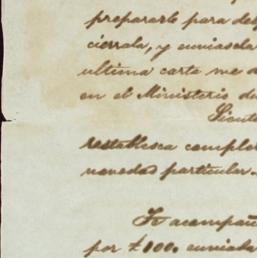 prepararlo para de
cierrala, y enviasela
ultima carta me d
en el Ministerio de
Siento
restablesca comple
novedad particular.
Te acompañ
por £100. enviada